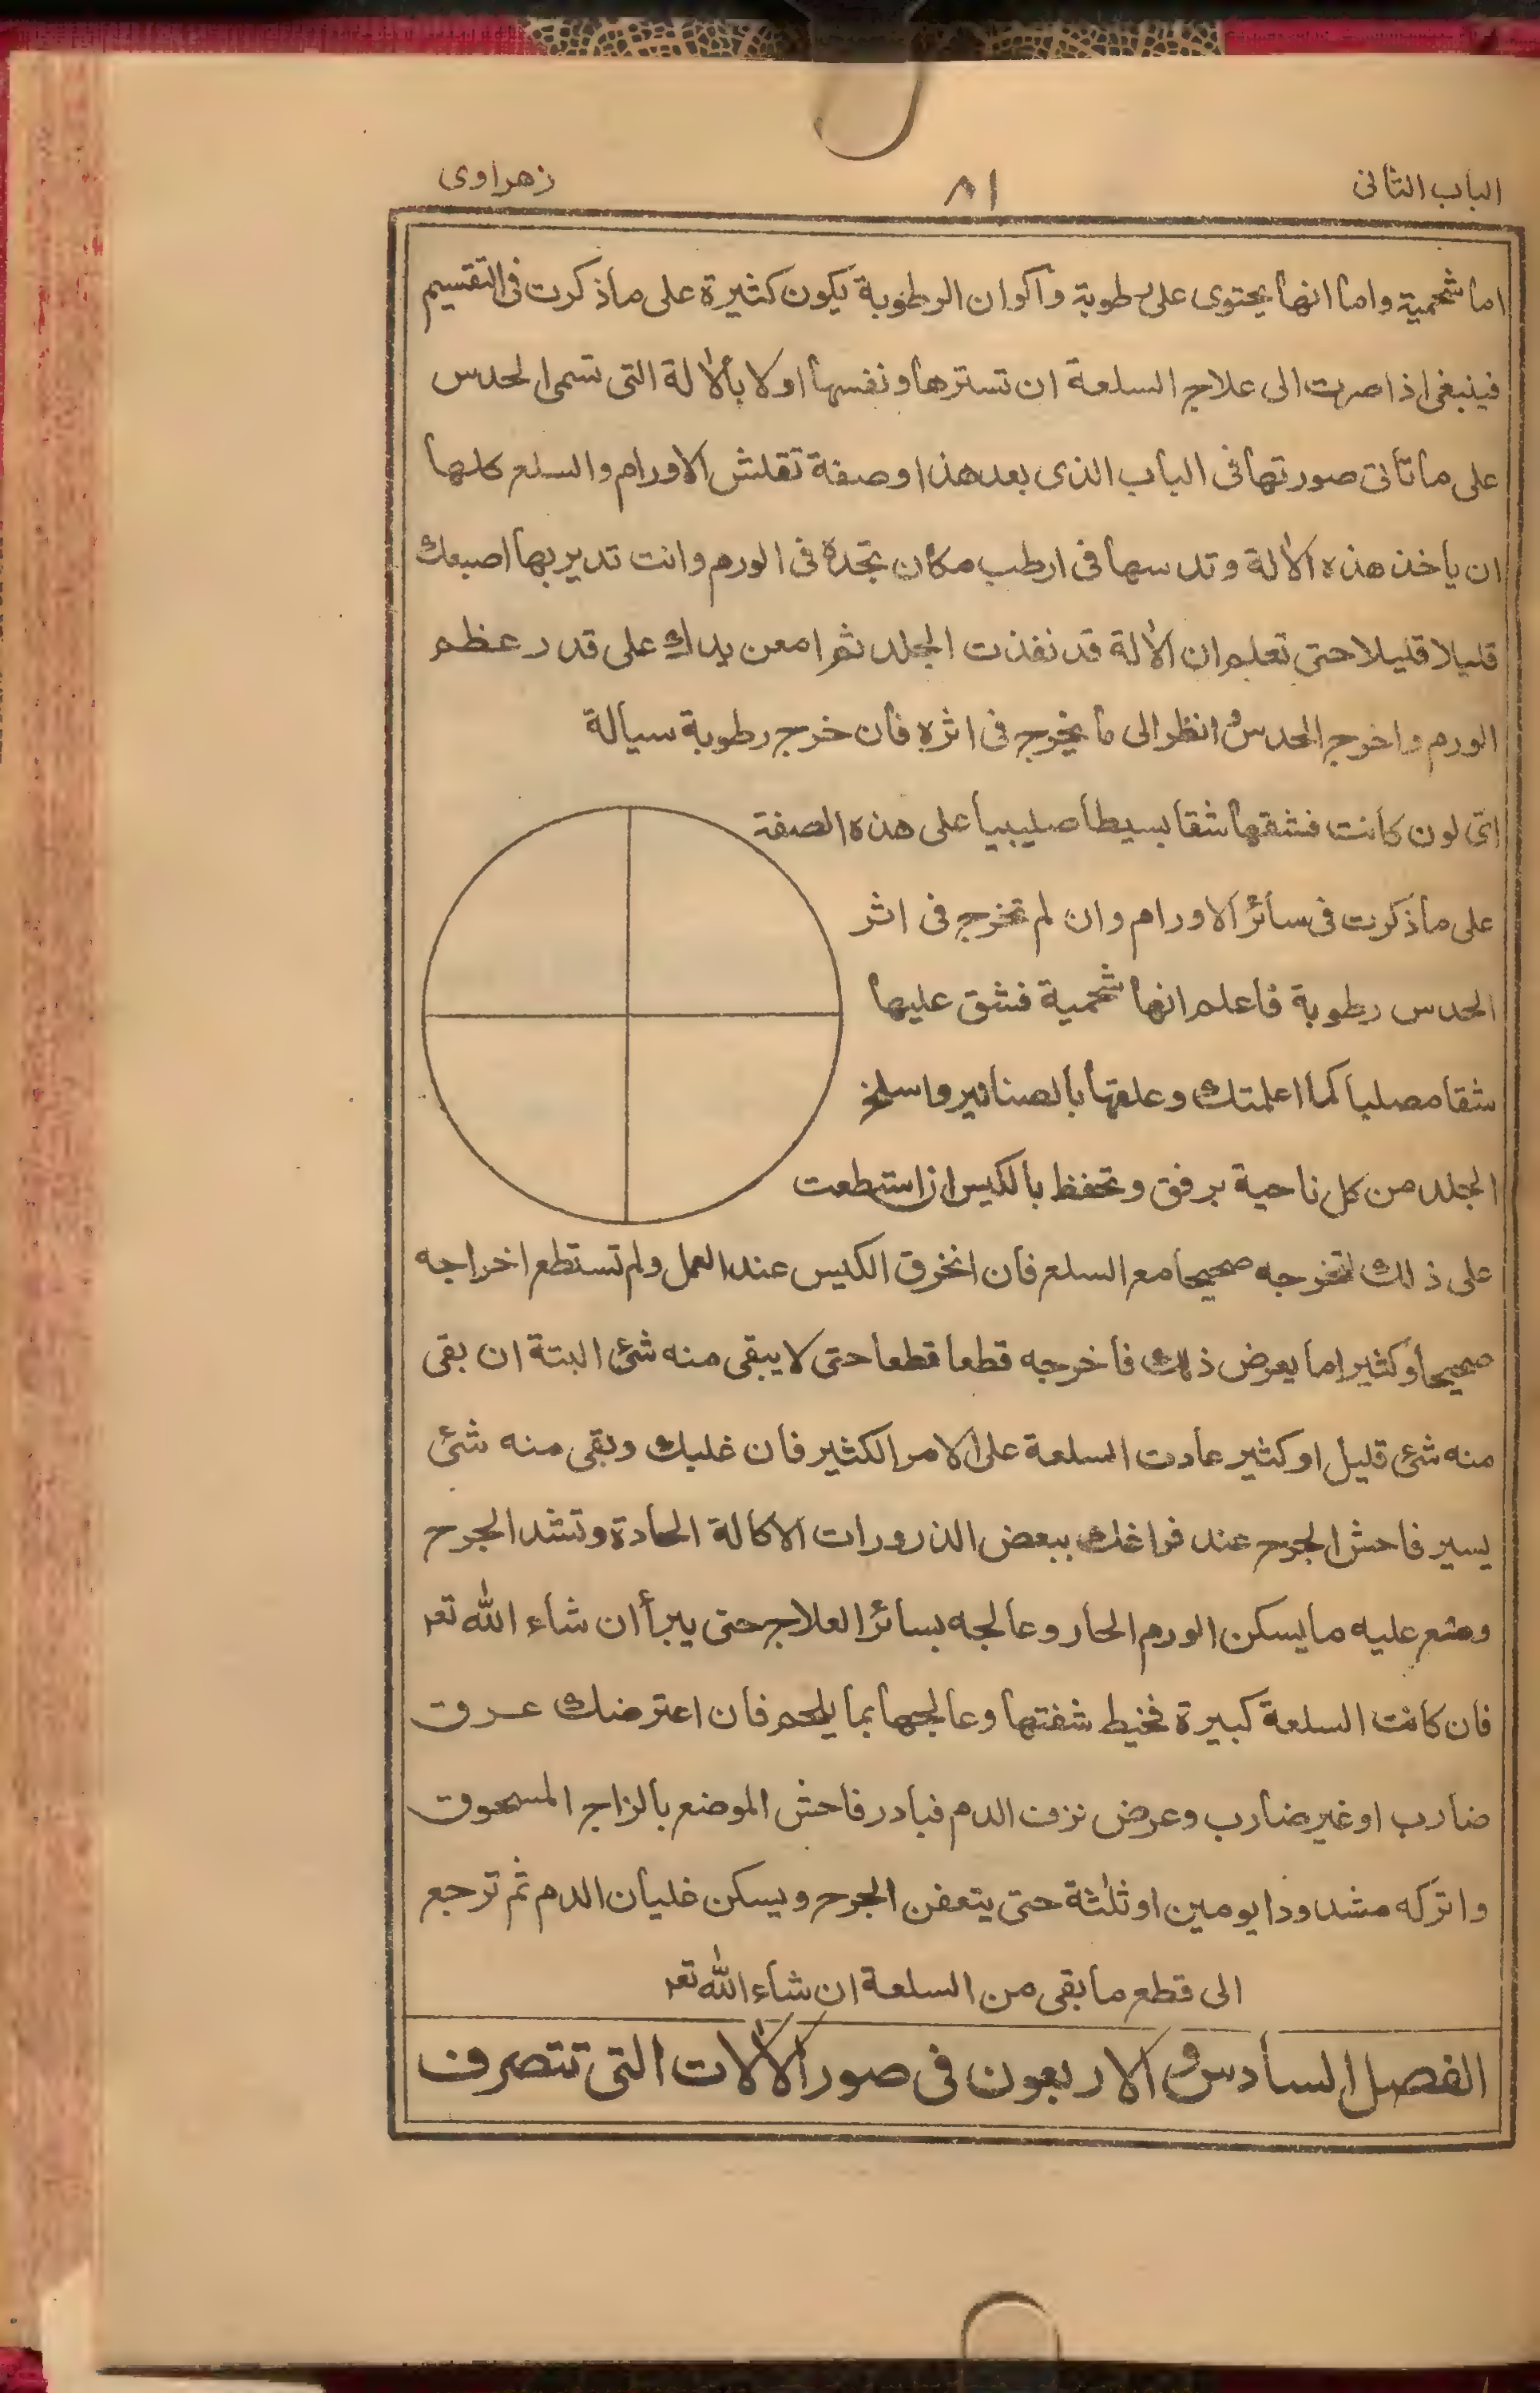 الباب الثانى ٨١ زهراوى
اما شحمية واما انها يحتوى على رطوبة واكوان الرطوبة يكون كثيرة على ماذكرت فى التقسيم
فينبغى اذا صرت الى علاج السلعة ان تسترها ونفسها اولا بالالة التى تسمى الحدس
على ماتاتى صورتها فى الباب الذى بعد هذا وصفة تقلش الاورام والسلع كلها
ان ياخذ هذه الالة وتدسها فى ارطب مكان تجده فى الورم وانت تدير بها اصبعك
قليلا قليلا حتى تعلم ان الالة قد نفذت الجلد ثم امعن يدك على قدر عظم
الورم واخرج الحدس وانظر الى ما يخرج فى اثره فان خرج رطوبة سيالة
اى لون كانت فشقها شقا بسيطا صليبيا على هذه الصفة
على ماذكرت فى سائر الاورام وان لم تخرج فى اثر
الحدس رطوبة فاعلم انها شحمية فشق عليها
شقا مصلبا كما اعلمتك وعلقها بالصنانير واسلخ
الجلد من كل ناحية برفق وتحفظ بالكيس ان استطعت
على ذلك لتخرجه صحيحا مع السلع فان انخرق الكيس عند العمل ولم تستطع اخراجه
صحيحا وكثيرا ما يعرض ذلك فاخرجه قطعا قطعا حتى لا يبقى منه شئ البتة ان بقى
منه شئ قليل او كثير عادت السلعة على الامر الكثير فان غلبك وبقى منه شئ
يسير فاحش الجرح عند فراغك ببعض الذرورات الاكالة الحادة وتشد الجرح
وضع عليه ما يسكن الورم الحار وعالجه بسائر العلاج حتى يبرأ ان شاء الله تعـ
فان كانت السلعة كبيرة فخيط شفتها وعالجها بما يلحم فان اعترضك عرق
ضارب او غير ضارب وعرض نزف الدم فبادر فاحش الموضع بالزاج المسحوق
واتركه مشدودا يومين او ثلثة حتى يتعفن الجرح ويسكن غليان الدم ثم ترجع
الى قطع ما بقى من السلعة ان شاء الله تعـ
الفصل السادس والاربعون فى صور الالات التى تتصرف